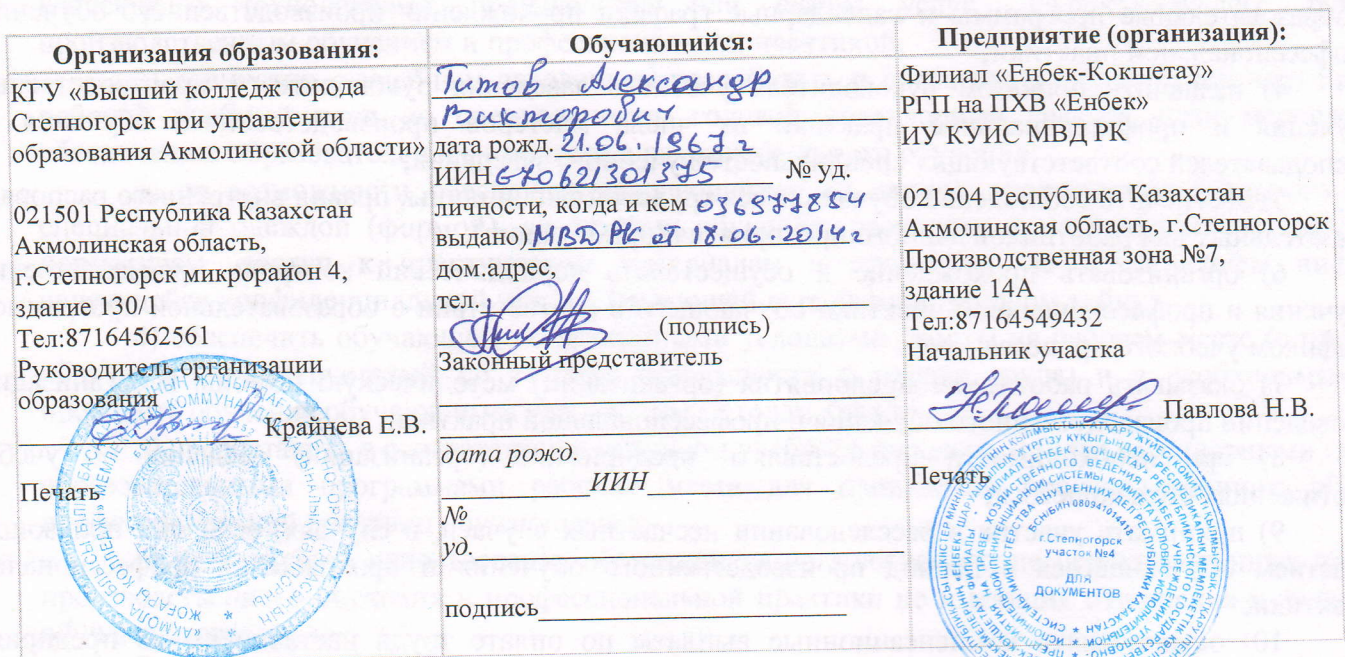 Организация образования:
КГУ «Высший колледж города
Степногорск при управлении
образования Акмолинской области»
021501 Республика Казахстан
Акмолинская область,
г.Степногорск микрорайон 4,
здание 130/1
Тел:87164562561
Руководитель организации
образования
Крайнева Е.В.
Печать
Обучающийся:
Титов Александр
Викторович
дата рожд. 21.06.1967 г
ИИН 670621301375 № уд.
личности, когда и кем 036977854
выдано) МВД РК от 18.06.2014 г
дом.адрес,
тел.:
(подпись)
Законный представитель
дата рожд.
ИИН
№
уд.
подпись
Предприятие (организация):
Филиал «Енбек-Кокшетау»
РГП на ПХВ «Енбек»
ИУ КУИС МВД РК
021504 Республика Казахстан
Акмолинская область, г.Степногорск
Производственная зона №7,
здание 14А
Тел:87164549432
Начальник участка
Павлова Н.В.
Печать
г.Степногорск
участок №4
ДЛЯ
ДОКУМЕНТОВ